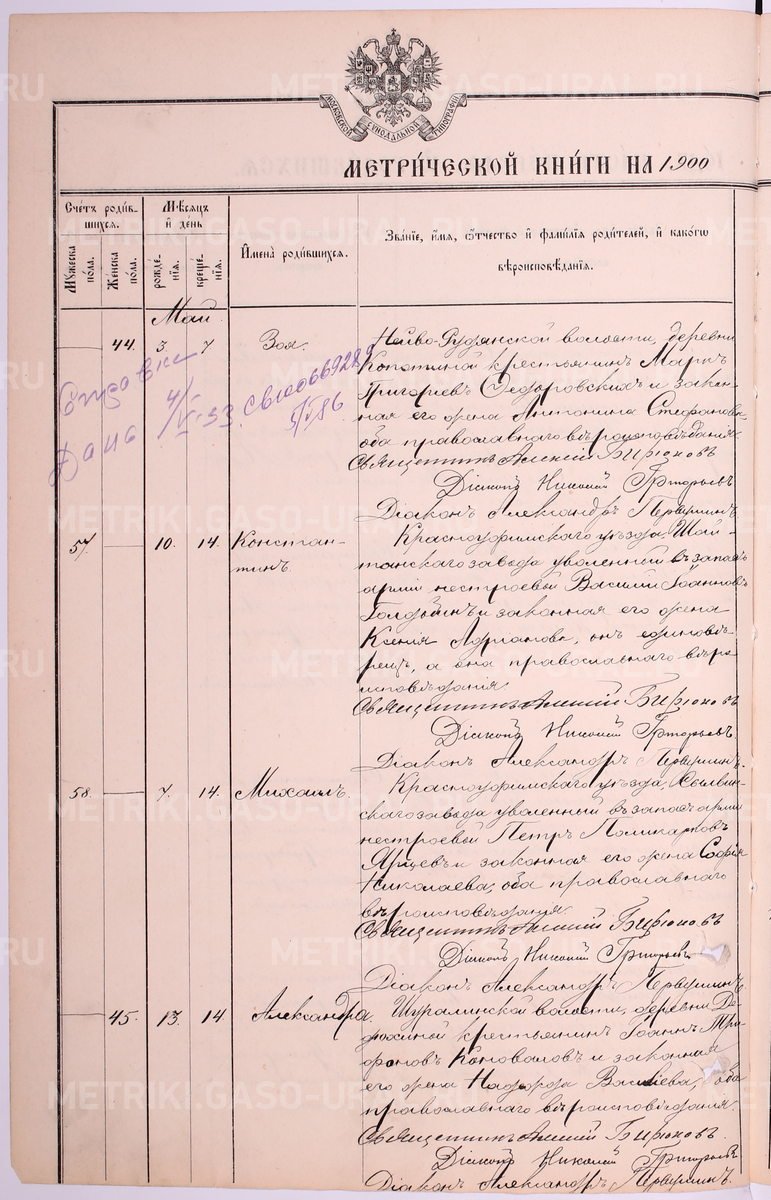 МОСКОВСКОЙ СѴНОДАЛЬНОЙ ТИПОГРАФІИ
МЕТРИ́ЧЕСКОЙ КНИ́ГИ НА 1900
Сче́тъ роди́в-
шихся.
Мѣ́сяцъ
и҆ де́нь
Му́жеска
по́ла.
Же́нска
по́ла.
рожде́-
нїѧ.
креще́-
нїѧ.
И҆мена̀ роди́вшихся.
Зва́нїе, и҆́мѧ, ѻ҆́тчество и҆ фами́лїѧ роди́телей, и҆ какѡ́гѡ
вѣроисповѣ́данїѧ.
Май.
44. 3 7 Зоя.
Нейво-Рудянской волости, деревни
Копотиной крестьянинъ Маркъ
Григорьевъ Ѳедоровскихъ и закон-
ная его жена Антонина Стефановна
оба православнаго вѣроисповѣданія.
Священникъ Алексій Бирюковъ
Діаконъ Николай Григорьевъ
Діаконъ Александръ Первушинъ.
Дана 4/V-33.
57. 10. 14. Констан-
тинъ.
Красноуфимскаго уѣзда, Шай-
танскаго завода уволенный въ запасъ
арміи нестроевый Василій Іоанновъ
и законная его жена
Ксенія Адріанова, онъ единовѣ-
рецъ, а она православнаго вѣро-
исповѣданія.
Священникъ Алексій Бирюковъ
Діаконъ Николай Григорьевъ
Діаконъ Александръ Первушинъ.
58. 7. 14. Михаилъ.
Красноуфимскаго уѣзда, Сылвин-
скаго завода уволенный въ запасъ арміи
нестроевый Петръ Поликарповъ
Ярцевъ и законная его жена Софія
Николаева, оба православнаго
вѣроисповѣданія.
Священникъ Алексій Бирюковъ
Діаконъ Николай Григорьевъ
Діаконъ Александръ Первушинъ.
45. 13. 14 Александра.
Шуралинской волости, деревни
крестьянинъ Іоаннъ Три-
фоновъ Коноваловъ и законная
его жена Надежда Васильева, оба
православнаго вѣроисповѣданія.
Священникъ Алексій Бирюковъ.
Діаконъ Николай Григорьевъ
Діаконъ Александръ Первушинъ.
METRIKI.GASO-URAL.RU